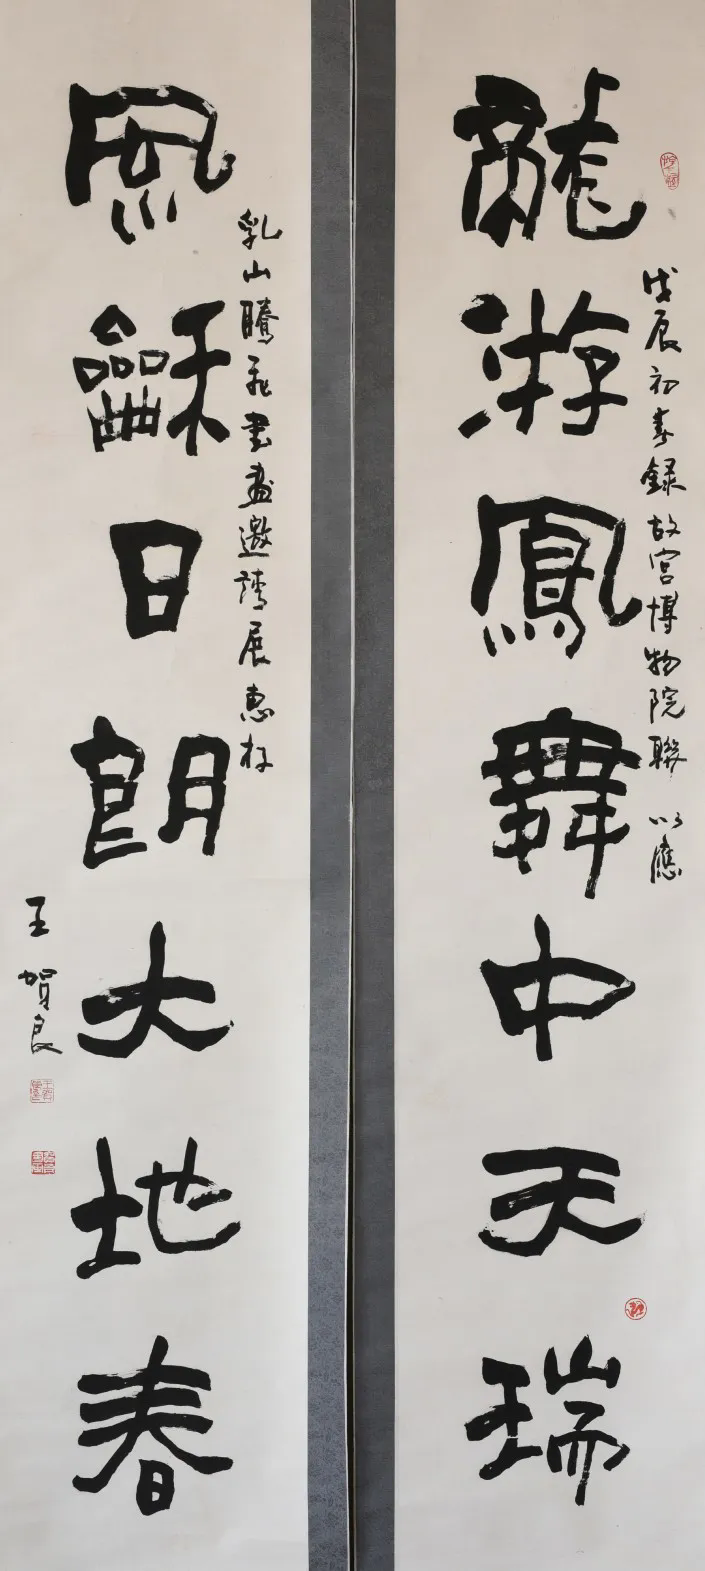 龍游鳳舞中天瑞
戊辰初春錄故宮博物院聯 以應
風龢日朗大地春
乳山騰飛書畫邀請展惠存
王賀良